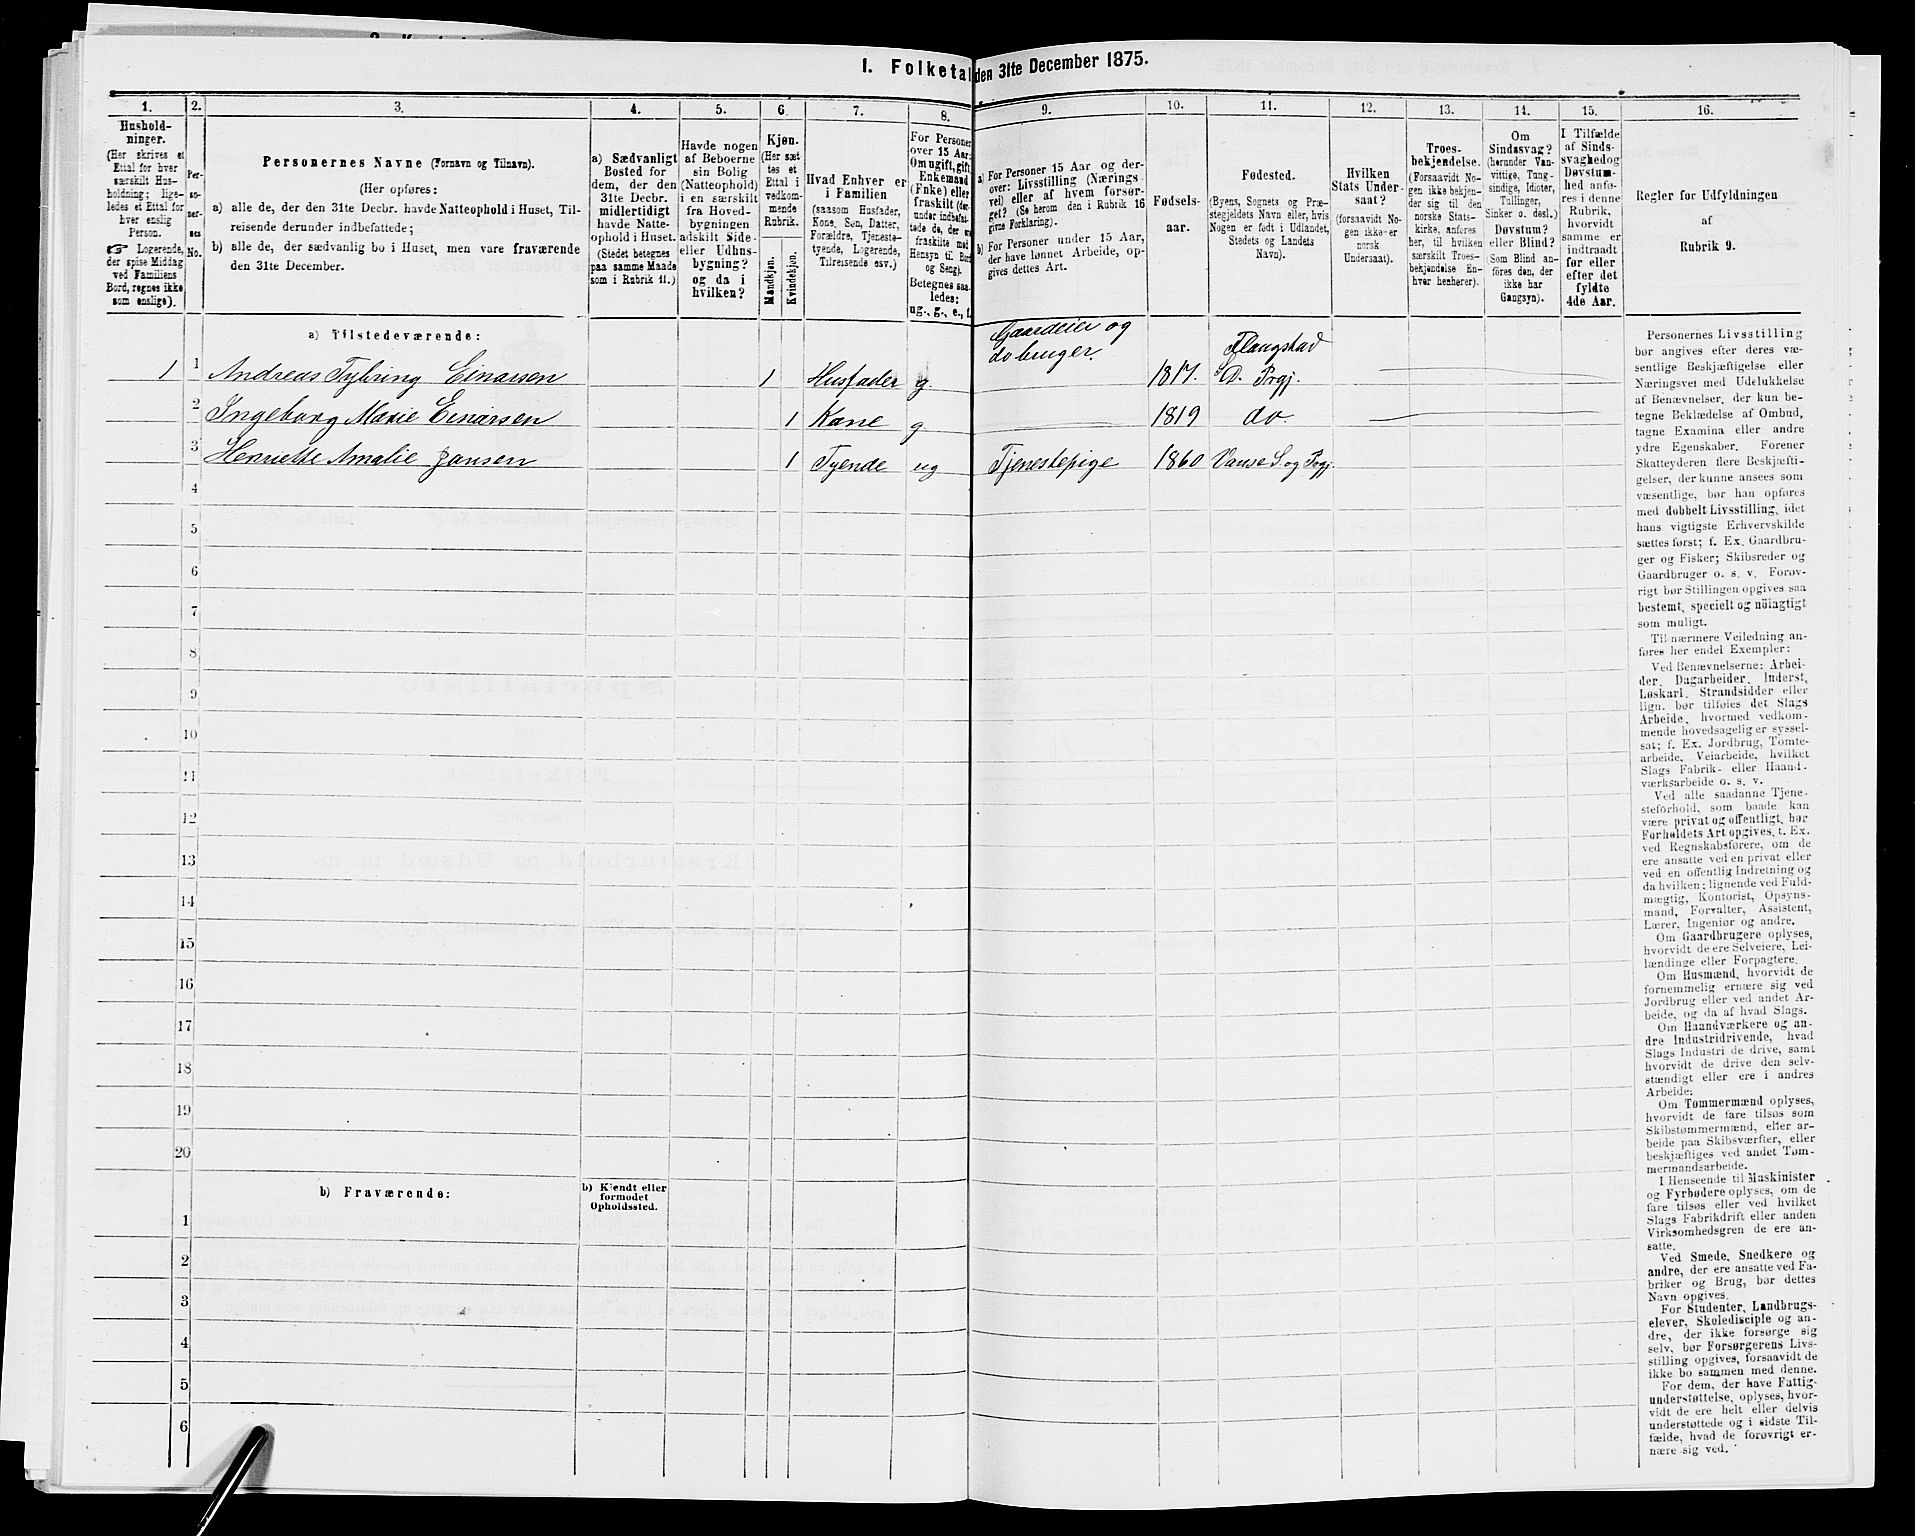 1. Folketal den 31te December 1875.
1. 2. 3. 4. 5. 6. 7. 8. 9. 10. 11. 12. 13. 14. 15. 16.
Hushold-
ninger.
(Her skrives et
Ettal for hver
særskilt Hus-
holdning; lige-
ledes et Ettal for
hver enslig
Person.
☞ Logerende,
der spise Middag
ved Familiens
Bord, regnes ikke
som enslige).
Per-
so-
ner-
nes
No.
Personernes Navne (Fornavn og Tilnavn).
(Her opføres:
a) alle de, der den 31te Decbr. havde Natteophold i Huset, Til-
reisende derunder indbefattede;
b) alle de, der sædvanlig bo i Huset, men vare fraværende
den 31te December.
a) Sædvanligt
Bosted for
dem, der den
31te Decbr.
midlertidigt
havde Natte-
ophold i Huset.
(Stedet betegnes
paa samme Maade
som i Rubrik 11.)
Havde nogen
af Beboerne
sin Bolig
(Natteophold)
i en særskilt
fra Hoved-
bygningen
adskilt Side-
eller Udhus-
bygning?
og da i
hvilken?
Kjøn.
(Her sæt
tes et
Ettal i
vedkom-
mende
Rubrik.
Mandkjøn.
Kvindekjøn.
Hvad Enhver er
i Familien
(saasom Husfader,
Kone, Søn, Datter,
Forældre, Tjeneste-
tyende, Logerende,
Tilreisende osv.)
For Personer
over 15 Aar:
Om ugift, gift,
Enkemand
(Enke) eller
fraskilt (der-
under indbefat-
tede de, der ere
fraskilte med
Hensyn til Bord
og Seng).
Betegnes saa-
ledes:
ug., g., e., f.
a) For Personer 15 Aar og der-
over: Livsstilling (Nærings-
vei) eller af hvem forsør-
get? (Se herom den i Rubrik 16
givne Forklaring).
b) For Personer under 15 Aar,
der have lønnet Arbeide, op-
gives dettes Art.
Fødsels-
aar.
Fødested.
(Byens, Sognets og Præ-
stegjeldets Navn eller, hvis
Nogen er født i Udlandet,
Stedets og Landets
Navn).
Hvilken
Stats Under-
saat?
(forsaavidt No-
gen ikke er
norsk
Undersaat).
Troes-
bekjendelse.
(Forsaavidt No-
gen ikke bekjen-
der sig til den
norske Stats-
kirke, anføres
her, til hvilken
særskilt Troes-
bekjendelse En-
hver henhører).
Om
Sindssvag?
(herunder Van-
vittige, Tung-
sindige, Idioter,
Tullinger,
Sinker o. desl.)
Døvstum?
eller Blind?
(Som Blind an-
føres den, der
ikke har
Gangsyn).
I Tilfælde
af Sinds-
svaghed og
Døvstum-
hed anfø-
res i denne
Rubrik,
hvorvidt
samme er
indtraadt
før eller
efter det
fyldte
4de Aar.
Regler for Udfyldningen
af
Rubrik 9.
a) Tilstedeværende:
Gaardeier og
do bruger. Flaugstad
1 1 Andreas Tybring Einarsen 1 Husfader g 1817. D. Prgj.
2 Ingeborg Marie Einarsen 1 Kone g 1819 do.
3 Henriette Amalie Jansen 1 Tyende ug Tjenestepige 1860 Vanse S og Prgj.
4
5
6
7
8
9
10
11
12
13
14
15
16
17
18
19
20
b) Fraværende:
b) Kjendt eller
formodet
Opholdssted.
1
2
3
4
5
6
Personernes Livsstilling
bør angives efter deres væ-
sentlige Beskjæftigelse eller
Næringsvei med Udelukkelse
af Benævnelser, der kun be-
tegne Beklædelse af Ombud,
tagne Examina eller andre
ydre Egenskaber. Forener
Skatteyderen flere Beskjæfti-
gelser, der kunne ansees som
væsentlige, bør han opføres
med dobbelt Livsstilling, idet
hans vigtigste Erhvervskilde
sættes først; f. Ex. Gaardbru-
ger og Fisker; Skibsreder og
Gaardbruger o. s. v. Forøv-
rigt bør Stillingen opgives saa
bestemt, specielt og nöiagtigt
som muligt.
Til nærmere Veiledning an-
føres her endel Exempler:
Ved Benævnelserne: Arbei-
der, Dagarbeider, Inderst,
Løskarl, Strandsidder eller
lign. bør tilføies det Slags
Arbeide, hvormed vedkom-
mende hovedsagelig er syssel-
sat; f. Ex. Jordbrug, Tomte-
arbeide, Veiarbeide, hvilket
Slags Fabrik- eller Haand-
værksarbeide o. s. v.
Ved alle saadanne Tjene-
steforhold, som baade kan
være privat og offentligt, bør
Forholdets Art opgives, t. Ex.
ved Regnskabsførere, om de
ere ansatte ved en privat eller
ved en offentlig Indretning og
da hvilken; lignende ved Fuld-
mægtig, Kontorist, Opsyns-
mand, Forvalter, Assistent,
Lærer, Ingeniør og andre.
Om Gaardbrugere oplyses,
hvorvidt de ere Selveiere, Lei-
lændinge eller Forpagtere.
Om Husmænd, hvorvidt de
fornemmelig ernære sig ved
Jordbrug eller ved andet Ar-
beide, og da af hvad Slags.
Om Haandværkere og an-
dre Industridrivende, hvad
Slags Industri de drive, samt
hvorvidt de drive den selv-
stændigt eller ere i andres
Arbeide;
Om Tømmermænd oplyses,
hvorvidt de fare tilsøs som
Skibstømmermænd, eller ar-
beide paa Skibsværfter, eller
beskjæftiges ved andet Tøm-
mermandsarbeide.
I Henseende til Maskinister
og Fyrbødere oplyses, om de
fare tilsøs eller ved hvilket
Slags Fabrikdrift eller anden
Virksomhedsgren de ere an-
satte.
Ved Smede, Snedkere og
andre, der ere ansatte ved Fa-
briker og Brug, bør dettes
Navn opgives.
For Studenter, Landbrugs-
elever, Skoledisciple og an-
dre, der ikke forsørge sig
selv, bør Forsørgerens Livs-
stilling opgives, forsaavidt de
ikke bo sammen med denne.
For dem, der have Fattig-
understøttelse, oplyses, hvor-
vidt de ere helt eller delvis
understøttede og i sidste Til-
fælde, hvad de forøvrigt er-
nære sig ved.